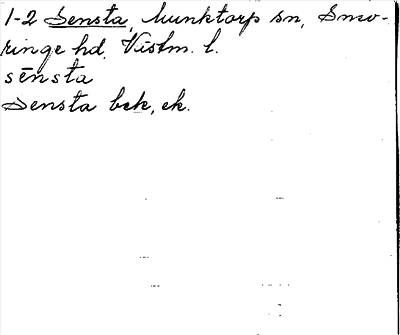 1-2 Sensta, Munktorp sn, Snev-
ringe hd, Västm. l.
sēnsta
Sensta bek, ek.